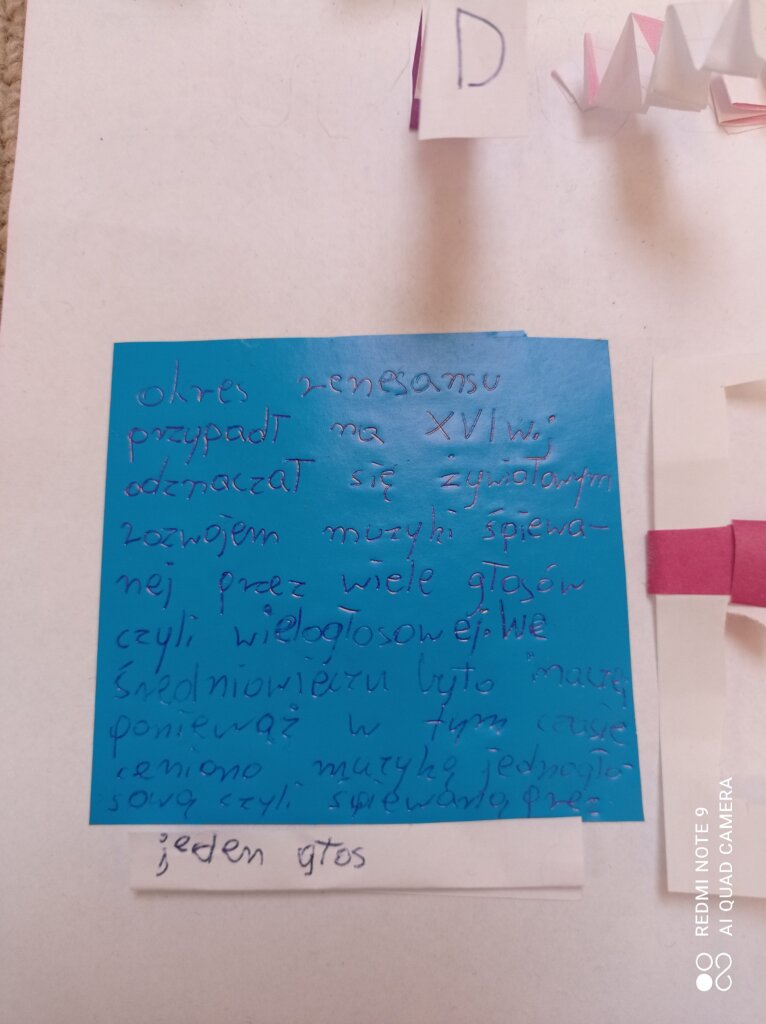 D
okres renesansu
przypadł na XVI w.j
odznaczał się żywiołowym
rozwojem muzyki śpiewa-
nej przez wiele głosów
czyli wielogłosowej. We
średniowieczu było inaczej
ponieważ w tym czasie
ceniono muzykę jednogło-
sową czyli śpiewaną prze-
jeden głos
REDMI NOTE 9
AI QUAD CAMERA